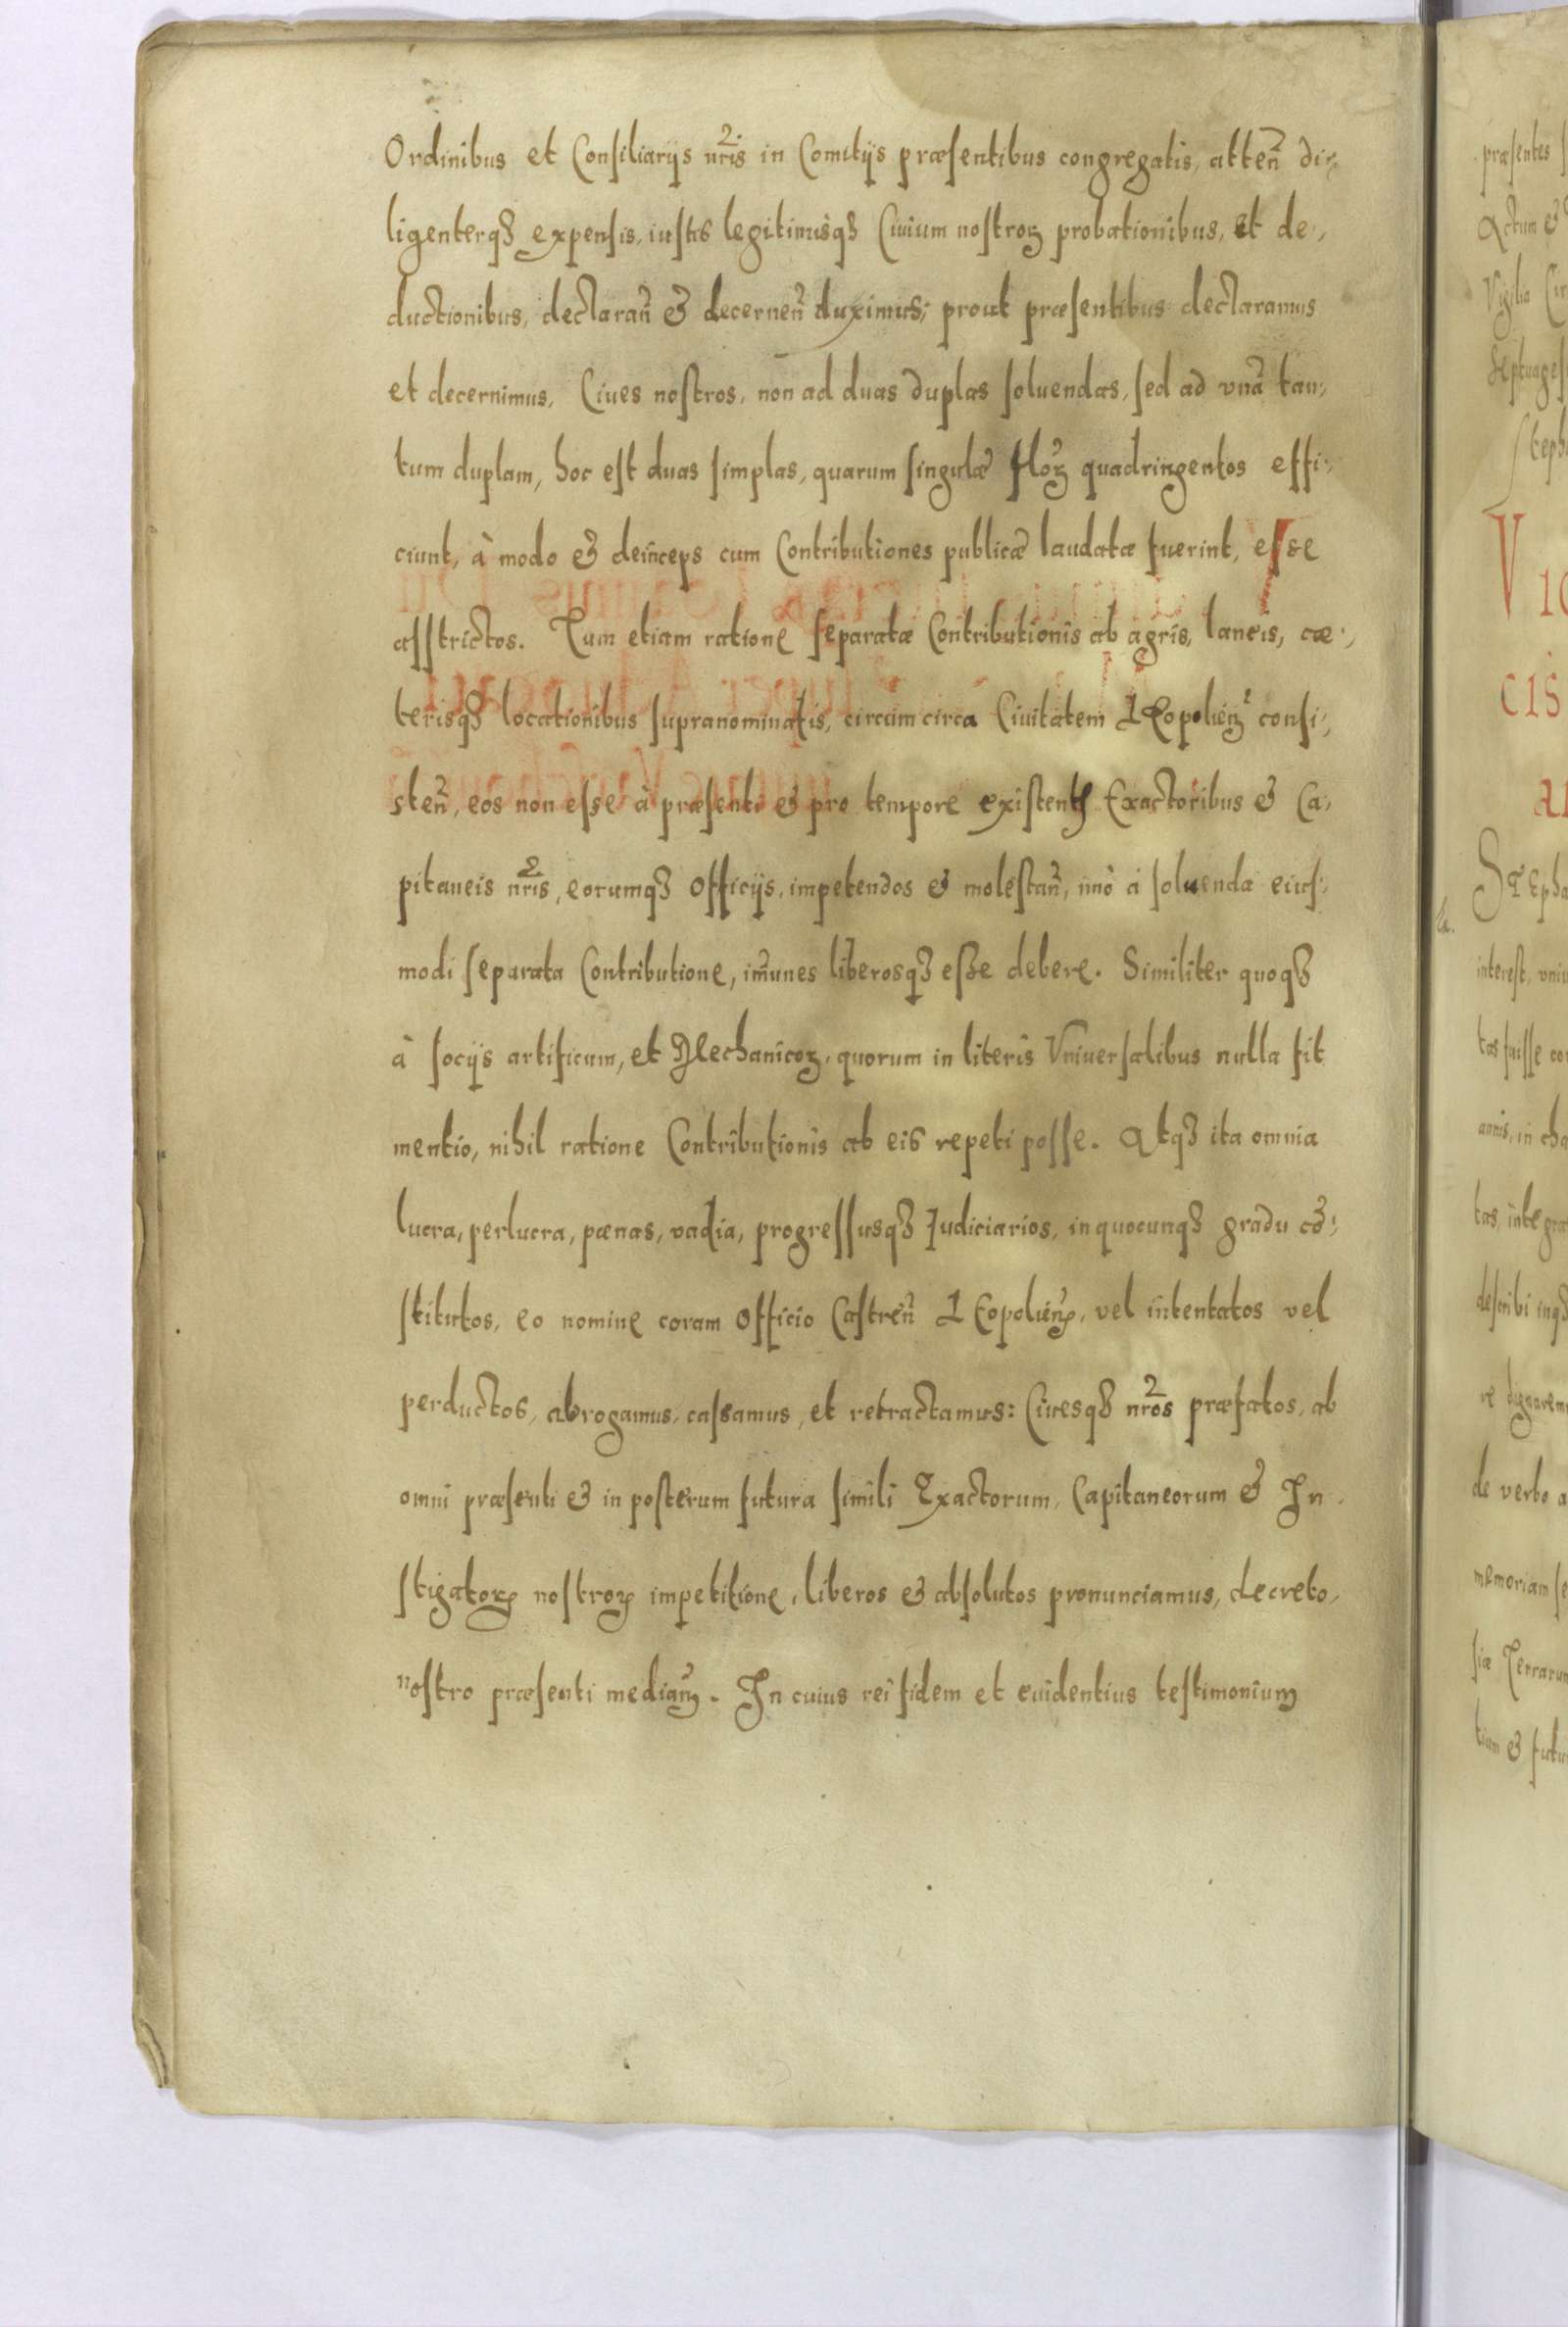 Ordinibus et Consiliarijs nr̃is in Comitijs præsentibus congregatis, atten̄ di-
ligenterqȝ expensis, iustis legitimisqȝ Ciuium nostroꝝ probationibus, et de-
ductionibus, declaran̄ & decernen̄ duximus; prout præsentibus declaramus
et decernimus, Ciues nostros, non ad duas duplas soluendas, sed ad vnā tan-
tum duplam, hoc est duas simplas, quarum singulæ floꝝ quadringentos effi-
ciunt, à modo & deinceps cum Contributiones publicæ laudatæ fuerint, esse
asstrictos. Tum etiam ratione separatæ Contributionis ab agris, laneis, cæ-
terisqȝ locationibus supranominatis, circum circa Ciuitatem Leopolien̄ consi-
sten̄, eos non esse à præsenti & pro tempore existen Exactoribus & Ca-
pitaneis nr̃is, eorumqȝ Officijs, impetendos & molestan̄, imò à soluenda eius-
modi separata Contributione, im̄unes liberosqȝ esse debere. Similiter quoqȝ
à socijs artificum, et Mechanicoꝝ, quorum in literis Vniuersalibus nulla fit
mentio, nihil ratione Contributionis ab eis repeti posse. Atqȝ ita omnia
lucra, perlucra, pænas, vadia, progressusqȝ Judiciarios, in quocunqȝ gradu cō-
stitutos, eo nomine coram Officio Castren̄ Leopolien̄, vel intentatos vel
perductos, abrogamus, cassamus, et retractamus: Ciuesqȝ nr̃os præfatos, ab
omni præsenti & in posterum futura simili Exactorum, Capitaneorum & In-
stigatoꝝ nostroꝝ impetitione, liberos & absolutos pronunciamus, decreto
nostro præsenti median̄. In cuius rei fidem et euidentius testimonium
præsentes
Actum &
Vigilia
Septuages
Steph
V
cis
Steph
interest, vniu
tas fuisse
annis, in cha
tas, integra
describi inqȝ
re dignarem
de verbo a
memoriam se
siæ Terrarum
tium & futu